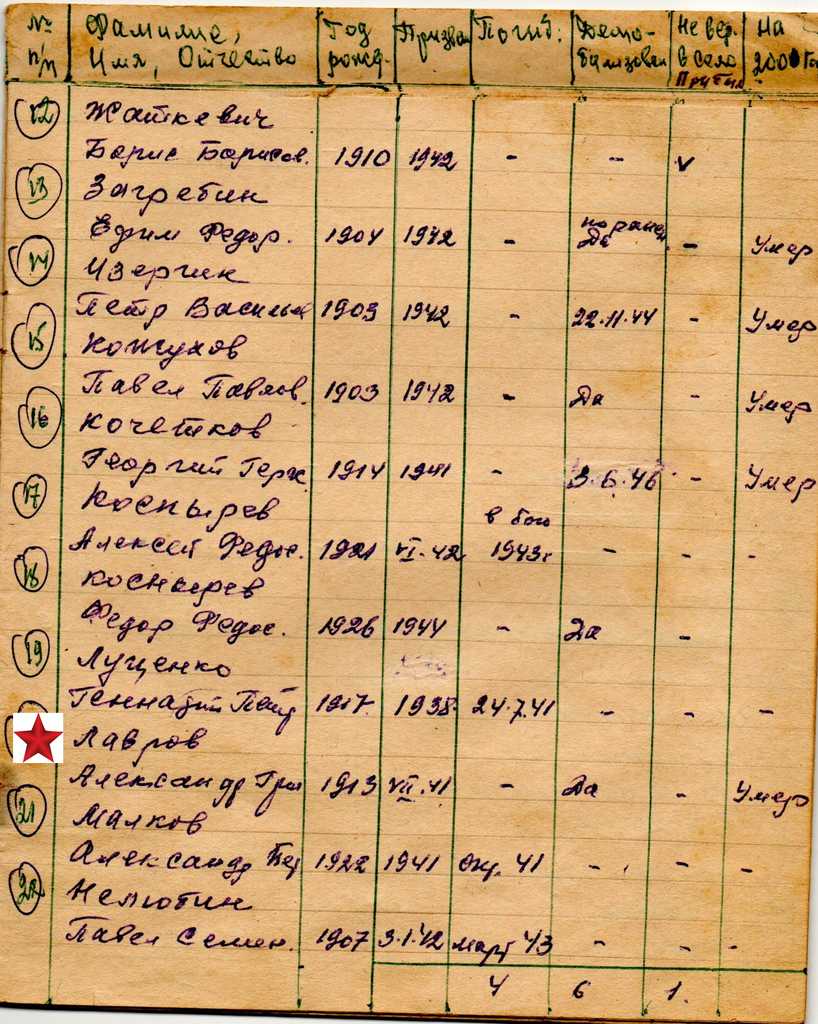 № Фамилие, Год Призван Погиб. Демо- Не вер. На
п/п Имя, Отчество рожд. билизован в село 2000 г.
Прибыл
12 Жаткевич
Борис Борисов. 1910 1942 - - v
13 Загребин
по ранен.
Ефим Федор. 1904 1942 - Да - Умер
14 Изергин
Петр Василье 1903 1942 - 22.11.44 - Умер
15 Кожухов
Павел Павлов. 1903 1942 - Да - Умер
16 Кочетков
Георгий Герас. 1914 1941 - 3.6.46 - Умер
17 Коснырев в бою
Алексей Федос. 1921 VI.42 1943г - - -
18 Коснырев
Федор Федос. 1926 1944 - Да -
19 Луценко
Геннадий Петр 1917. 1938. 24.7.41 - - -
Лавров
Александр Гри 1913 VII.41 - Да - Умер
21 Малков
Александр 1922 1941 окт. 41 - - -
22 Нелюбин
Павел Семен. 1907 3.1.42 март 43 - - -
4 6 1.